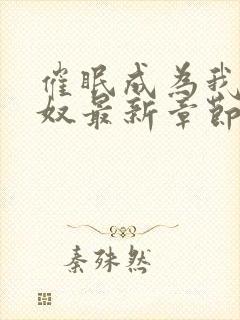 催眠成为我
奴最新章節
秦殊然